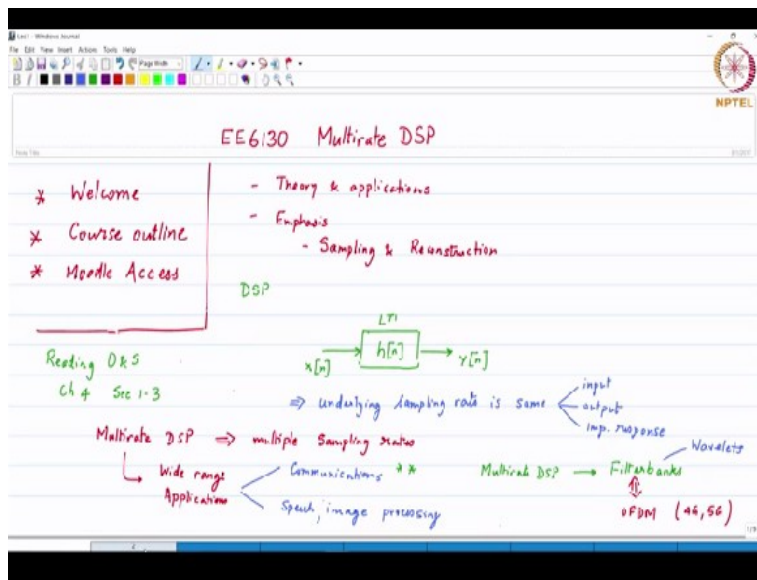 Lec1 - Windows Journal
File Edit View Insert Actions Tools Help
Page Width
B I
NPTEL
EE6130 Multirate DSP
Note Title
* Welcome
* Course outline
* Moodle Access
- Theory & applications
- Emphasis
- Sampling & Reconstruction
DSP
LTI
x[n] h[n] y[n]
Reading O&S
Ch 4 Sec 1-3
⇒ underlying sampling rate is same
input
output
imp. response
Multirate DSP ⇒ multiple sampling rates
Wide range
Applications
Communications **
Speech, image processing
Multirate DSP → Filterbanks
Wavelets
OFDM (4G, 5G)